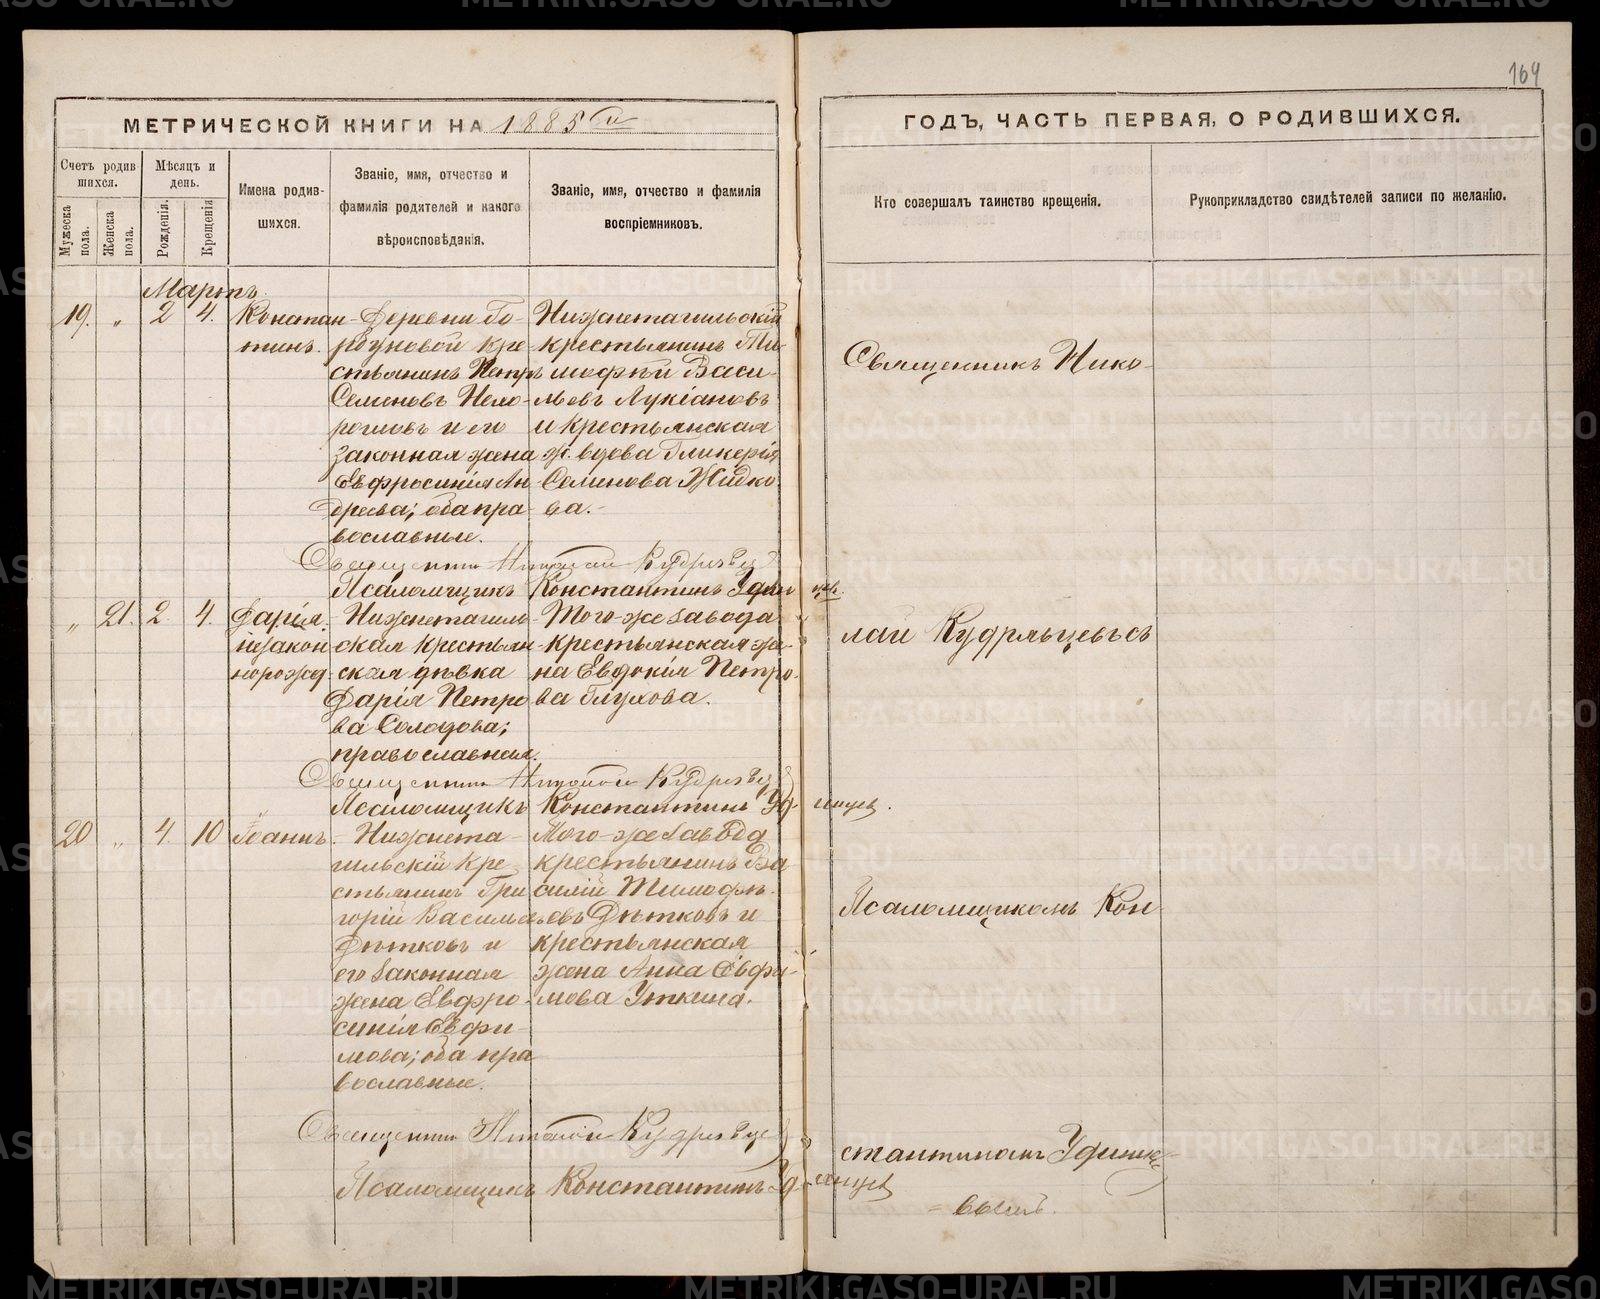 164
МЕТРИЧЕСКОЙ КНИГИ НА 1885 й
ГОДЪ, ЧАСТЬ ПЕРВАЯ, О РОДИВШИХСЯ.
Счетъ родив
шихся.
Мужеска
пола.
Женска
пола.
Мѣсяцъ и
день.
Рожденія.
Крещенія
Имена родив-
шихся.
Званіе, имя, отчество и
фамилія родителей и какого
вѣроисповѣданія.
Званіе, имя, отчество и фамилія
воспріемниковъ.
Кто совершалъ таинство крещенія.
Рукоприкладство свидѣтелей записи по желанію.
Мартъ
19. " 2 4.
Констан-
тинъ.
Деревни Го-
рбуновой кре
стьянинъ Петръ
Семеновъ
и его
законная жена
Евфросинія Ан-
дреева; оба пра-
вославные.
Нижнетагильскій
крестьянинъ Ти-
мофѣй Васи-
льевъ Лукіановъ
и крестьянская
ж. вдова Гликерія
Семенова Жидко-
ва.
Священникъ Николай Кудрявцевъ
Псаломщикъ Константинъ
" 21. 2. 4.
Дарія.
незакон
норожд.
Нижнетагиль-
ская крестьян-
ская дѣвка
Дарія Петро
ва Солодова;
православная.
Того-же завода
крестьянская же-
на Евдокія Петро-
ва Глухова.
Священникъ Николай Кудрявцевъ
Псаломщикъ Константинъ
20 " 4. 10
Іоаннъ.
Нижнета-
гильскій кре-
стьянинъ Гри
горій Васильевъ
Дѣтковъ и
его законная
жена Евфро-
синія Евфи-
мова; оба пра
вославные.
Того-же завода
крестьянинъ Ва
силій Тимофѣ-
евъ Дѣтковъ и
крестьянская
жена Анна Евфи-
мова Уткина.
Священникъ Николай Кудрявцевъ
Псаломщикъ Константинъ
Священникъ Нико-
лай Кудрявцевъ съ
Псаломщикомъ Кон-
стантиномъ
METRIKI.GASO-URAL.RU